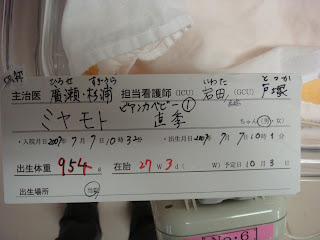 ひろせ すぎうら いわた とつか
主治医 廣瀬・杉浦 担当看護師(ICU) 岩田 (GCU) 戸塚
ビアンカベビー①
ミヤモト 直季 ちゃん(男・女)
・入院月日 2007年 7月 7日 10時 32分 ・出生月日 2007年 7月 7日 10時 1分
出生体重 954 g 在胎 27 W 3 d ( W) 予定日 10月 3日
出生場所 当院
No.6